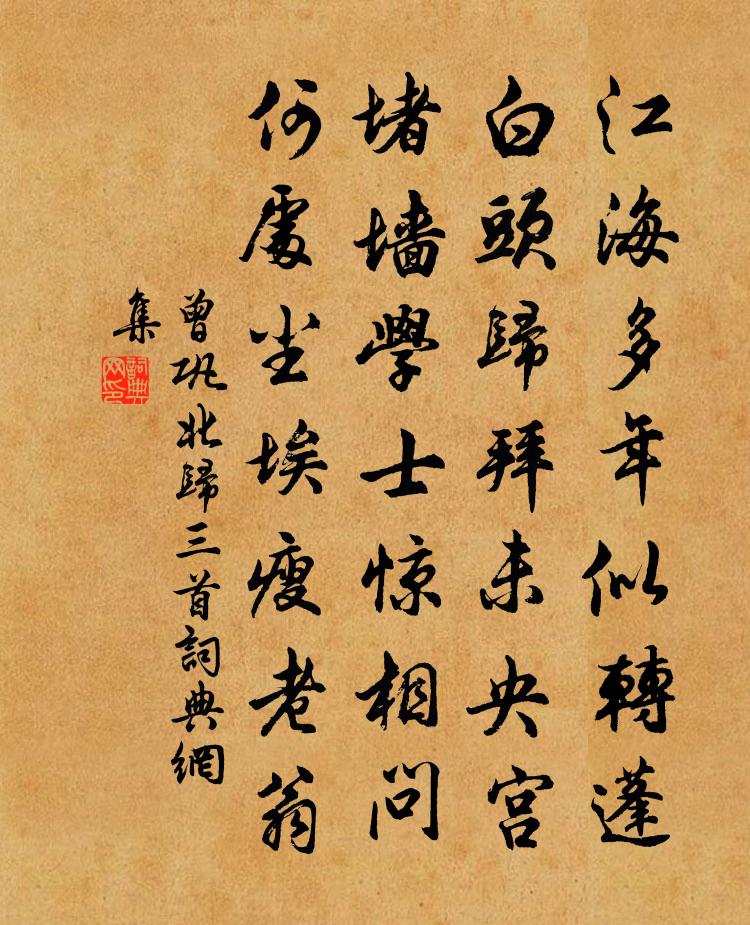 江海多年似轉蓬
白頭歸拜未央宮
堵墻學士惊相問
何處尘埃瘦老翁
曾巩北歸三首詞典網
集
詞典
网印